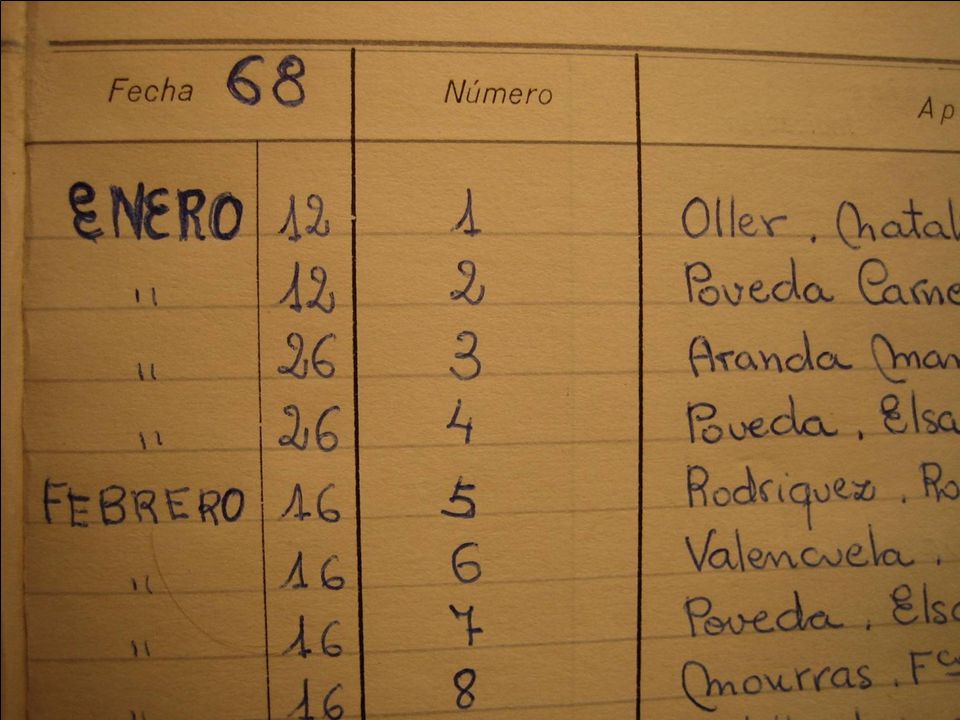 Fecha 68 Número Ap
ENERO 12 1 Oller, Matal
" 12 2 Poveda Carme
" 26 3 Aranda Man
" 26 4 Poveda, Elsa
FEBRERO 16 5 Rodriguez, Ro
" 16 6 Valenzuela,
" 16 7 Poveda, Elsa
" 16 8 Mourras, Fco